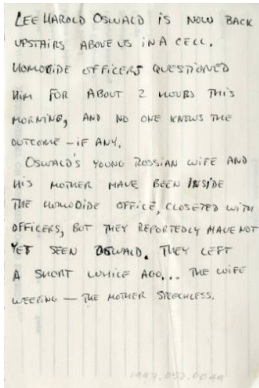 LEE HAROLD OSWALD IS NOW BACK
UPSTAIRS ABOVE US IN A CELL.
HOMODIDE OFFICERS QUESTIONED
HIM FOR ABOUT 2 HOURS THIS
MORNING, AND NO ONE KNOWS THE
OUTCOME – IF ANY.
OSWALD'S YOUNG RUSSIAN WIFE AND
HIS MOTHER HAVE BEEN INSIDE
THE HOMODIDE OFFICE, CLOSETED WITH
OFFICERS, BUT THEY REPORTEDLY HAVE NOT
YET SEEN OSWALD. THEY LEFT
A SHORT WHILE AGO... THE WIFE
WEEPING – THE MOTHER SPEECHLESS.